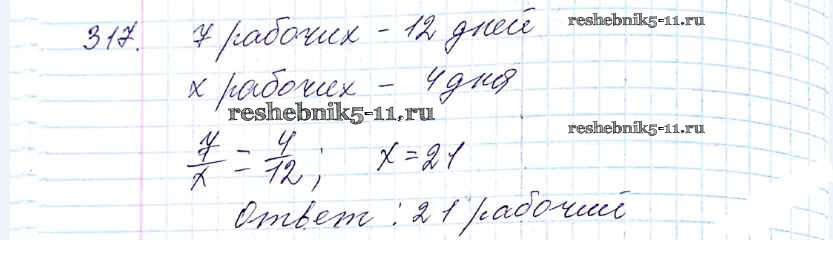 317. 7 рабочих - 12 дней
reshebnik5-11.ru
x рабочих - 4 дня
reshebnik5-11.ru
reshebnik5-11.ru
7/x = 4/12; x = 21
Ответ: 21 рабочий